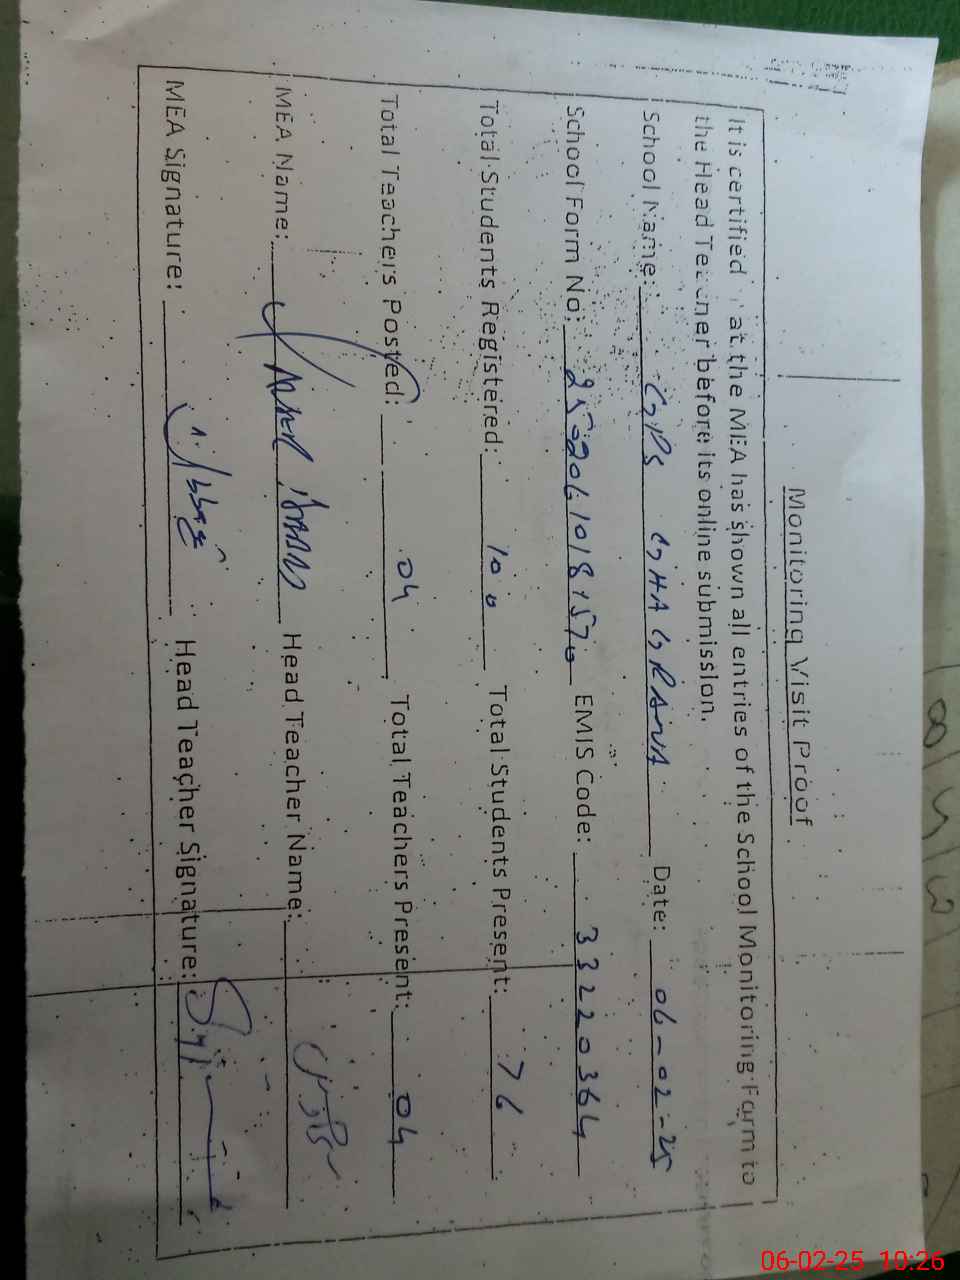 Monitoring Visit Proof
It is certified at the MEA has shown all entries of the School Monitoring Form to
the Head Teacher before its online submission.
School Name: GPS GHAGRANA Date: 06-02-25
School Form No: EMIS Code: 33220364
Total Students Registered: 100 Total Students Present: 76
Total Teachers Posted: 04 Total Teachers Present: 04
MEA Name: Head Teacher Name:
MEA Signature: Head Teacher Signature:
06-02-25 10:26